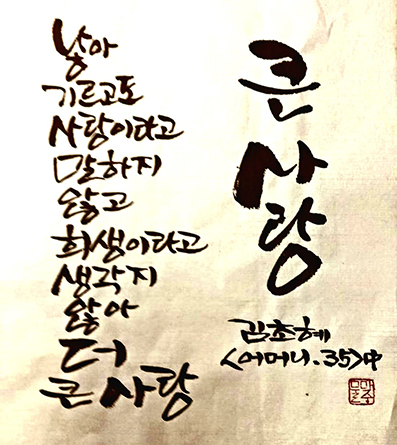 큰 사랑
낳아
기르고도
사랑이다고
말하지
않고
희생이다고
생각지
않아
더
큰 사랑
김초혜
<어머니.35>中